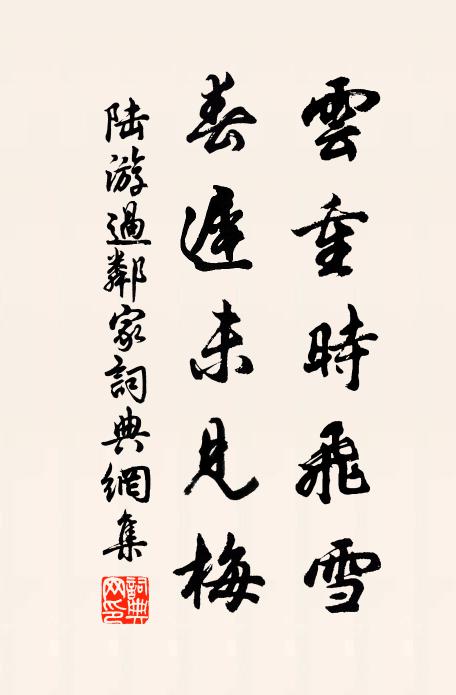 雲重時飛雪
春遲未見梅
陆游過鄰家詞典網集
詞典网印